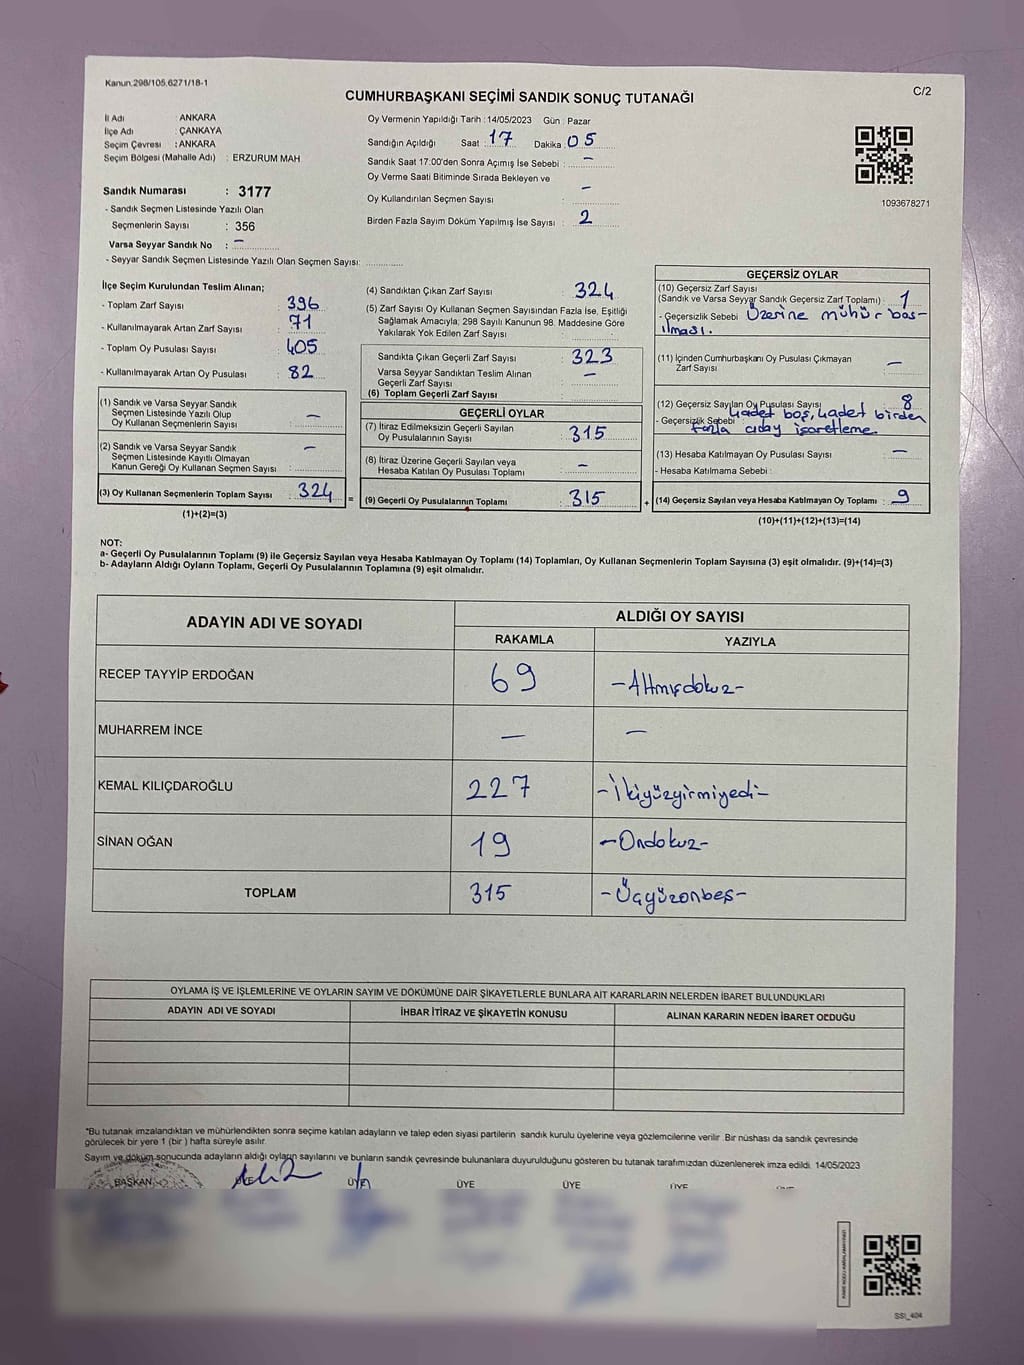 Kanun.298/105.6271/18-1
C/2
CUMHURBAŞKANI SEÇİMİ SANDIK SONUÇ TUTANAĞI
İl Adı : ANKARA
İlçe Adı : ÇANKAYA
Seçim Çevresi : ANKARA
Seçim Bölgesi (Mahalle Adı) : ERZURUM MAH
Sandık Numarası : 3177
- Sandık Seçmen Listesinde Yazılı Olan
Seçmenlerin Sayısı : 356
Varsa Seyyar Sandık No : –
- Seyyar Sandık Seçmen Listesinde Yazılı Olan Seçmen Sayısı:
Oy Vermenin Yapıldığı Tarih : 14/05/2023 Gün : Pazar
Sandığın Açıldığı Saat : 17 Dakika : 05
Sandık Saat 17:00'den Sonra Açımış İse Sebebi : –
Oy Verme Saati Bitiminde Sırada Bekleyen ve
Oy Kullandırılan Seçmen Sayısı –
Birden Fazla Sayım Döküm Yapılmış İse Sayısı : 2
1093678271
İlçe Seçim Kurulundan Teslim Alınan;
- Toplam Zarf Sayısı : 396
- Kullanılmayarak Artan Zarf Sayısı : 71
- Toplam Oy Pusulası Sayısı : 405
- Kullanılmayarak Artan Oy Pusulası : 82
(1) Sandık ve Varsa Seyyar Sandık
Seçmen Listesinde Yazılı Olup
Oy Kullanan Seçmenlerin Sayısı : –
(2) Sandık ve Varsa Seyyar Sandık
Seçmen Listesinde Kayıtlı Olmayan
Kanun Gereği Oy Kullanan Seçmen Sayısı : –
(3) Oy Kullanan Seçmenlerin Toplam Sayısı : 324 =
(1)+(2)=(3)
(4) Sandıktan Çıkan Zarf Sayısı : 324
(5) Zarf Sayısı Oy Kullanan Seçmen Sayısından Fazla İse, Eşitliği
Sağlamak Amacıyla; 298 Sayılı Kanunun 98. Maddesine Göre
Yakılarak Yok Edilen Zarf Sayısı :
Sandıkta Çıkan Geçerli Zarf Sayısı : 323
Varsa Seyyar Sandıktan Teslim Alınan –
Geçerli Zarf Sayısı :
(6) Toplam Geçerli Zarf Sayısı :
GEÇERLİ OYLAR
(7) İtiraz Edilmeksizin Geçerli Sayılan
Oy Pusulalarının Sayısı : 315
(8) İtiraz Üzerine Geçerli Sayılan veya
Hesaba Katılan Oy Pusulası Toplamı : –
(9) Geçerli Oy Pusulalarının Toplamı : 315 +
GEÇERSİZ OYLAR
(10) Geçersiz Zarf Sayısı
(Sandık ve Varsa Seyyar Sandık Geçersiz Zarf Toplamı) : 1
- Geçersizlik Sebebi : Üzerine mühür bas-
ılması.
(11) İçinden Cumhurbaşkanı Oy Pusulası Çıkmayan
Zarf Sayısı : –
(12) Geçersiz Sayılan Oy Pusulası Sayısı : 8
- Geçersizlik Sebebi : 4 adet boş, 4 adet birden
fazla aday işaretleme.
(13) Hesaba Katılmayan Oy Pusulası Sayısı : –
- Hesaba Katılmama Sebebi :
(14) Geçersiz Sayılan veya Hesaba Katılmayan Oy Toplamı : 9
(10)+(11)+(12)+(13)=(14)
NOT:
a- Geçerli Oy Pusulalarının Toplamı (9) ile Geçersiz Sayılan veya Hesaba Katılmayan Oy Toplamı (14) Toplamları, Oy Kullanan Seçmenlerin Toplam Sayısına (3) eşit olmalıdır. (9)+(14)=(3)
b- Adayların Aldığı Oyların Toplamı, Geçerli Oy Pusulalarının Toplamına (9) eşit olmalıdır.
ADAYIN ADI VE SOYADI
ALDIĞI OY SAYISI
RAKAMLA YAZIYLA
RECEP TAYYİP ERDOĞAN 69 –Altmışdokuz–
MUHARREM İNCE – –
KEMAL KILIÇDAROĞLU 227 –İkiyüzyirmiyedi–
SİNAN OĞAN 19 –Ondokuz–
TOPLAM 315 –Üçyüzonbeş–
OYLAMA İŞ VE İŞLEMLERİNE VE OYLARIN SAYIM VE DÖKÜMÜNE DAİR ŞİKAYETLERLE BUNLARA AİT KARARLARIN NELERDEN İBARET BULUNDUKLARI
ADAYIN ADI VE SOYADI İHBAR İTİRAZ VE ŞİKAYETİN KONUSU ALINAN KARARIN NEDEN İBARET OLDUĞU
*Bu tutanak imzalandıktan ve mühürlendikten sonra seçime katılan adayların ve talep eden siyasi partilerin sandık kurulu üyelerine veya gözlemcilerine verilir. Bir nüshası da sandık çevresinde
görülecek bir yere 1 (bir ) hafta süreyle asılır.
Sayım ve döküm sonucunda adayların aldığı oyların sayılarını ve bunların sandık çevresinde bulunanlara duyurulduğunu gösteren bu tutanak tarafımızdan düzenlenerek imza edildi. 14/05/2023
BAŞKAN ÜYE ÜYE ÜYE ÜYE ÜYE
SSİ_404